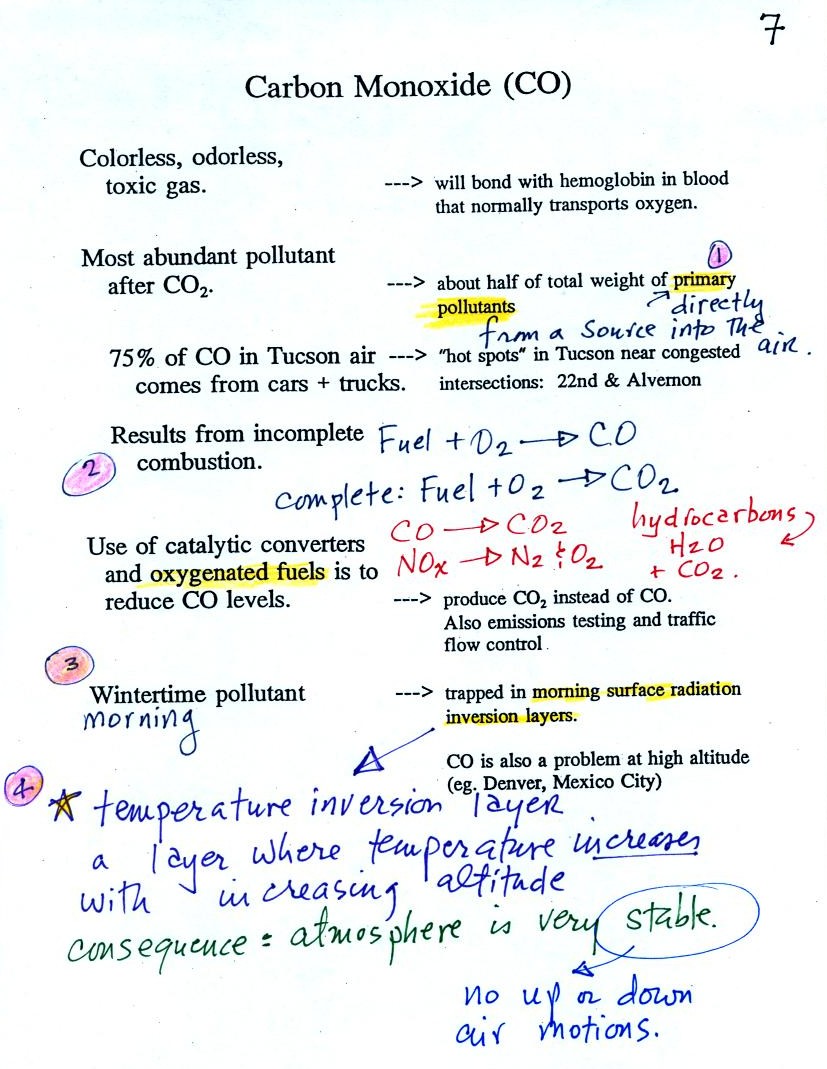 7
Carbon Monoxide (CO)
Colorless, odorless,
toxic gas.
---> will bond with hemoglobin in blood
that normally transports oxygen.
Most abundant pollutant
after CO₂.
1
---> about half of total weight of primary
pollutants
directly
from a source into the
air.
75% of CO in Tucson air
comes from cars + trucks.
---> "hot spots" in Tucson near congested
intersections: 22nd & Alvernon
2
Results from incomplete
combustion.
Fuel + O₂ → CO
complete: Fuel + O₂ → CO₂
Use of catalytic converters
and oxygenated fuels is to
reduce CO levels.
CO → CO₂
NOx → N₂ & O₂
hydrocarbons
H₂O
+ CO₂.
---> produce CO₂ instead of CO.
Also emissions testing and traffic
flow control.
3
Wintertime pollutant
morning
---> trapped in morning surface radiation
inversion layers.
CO is also a problem at high altitude
(eg. Denver, Mexico City)
4
★ temperature inversion layer
a layer where temperature increases
with increasing altitude
consequence = atmosphere is very stable.
no up or down
air motions.